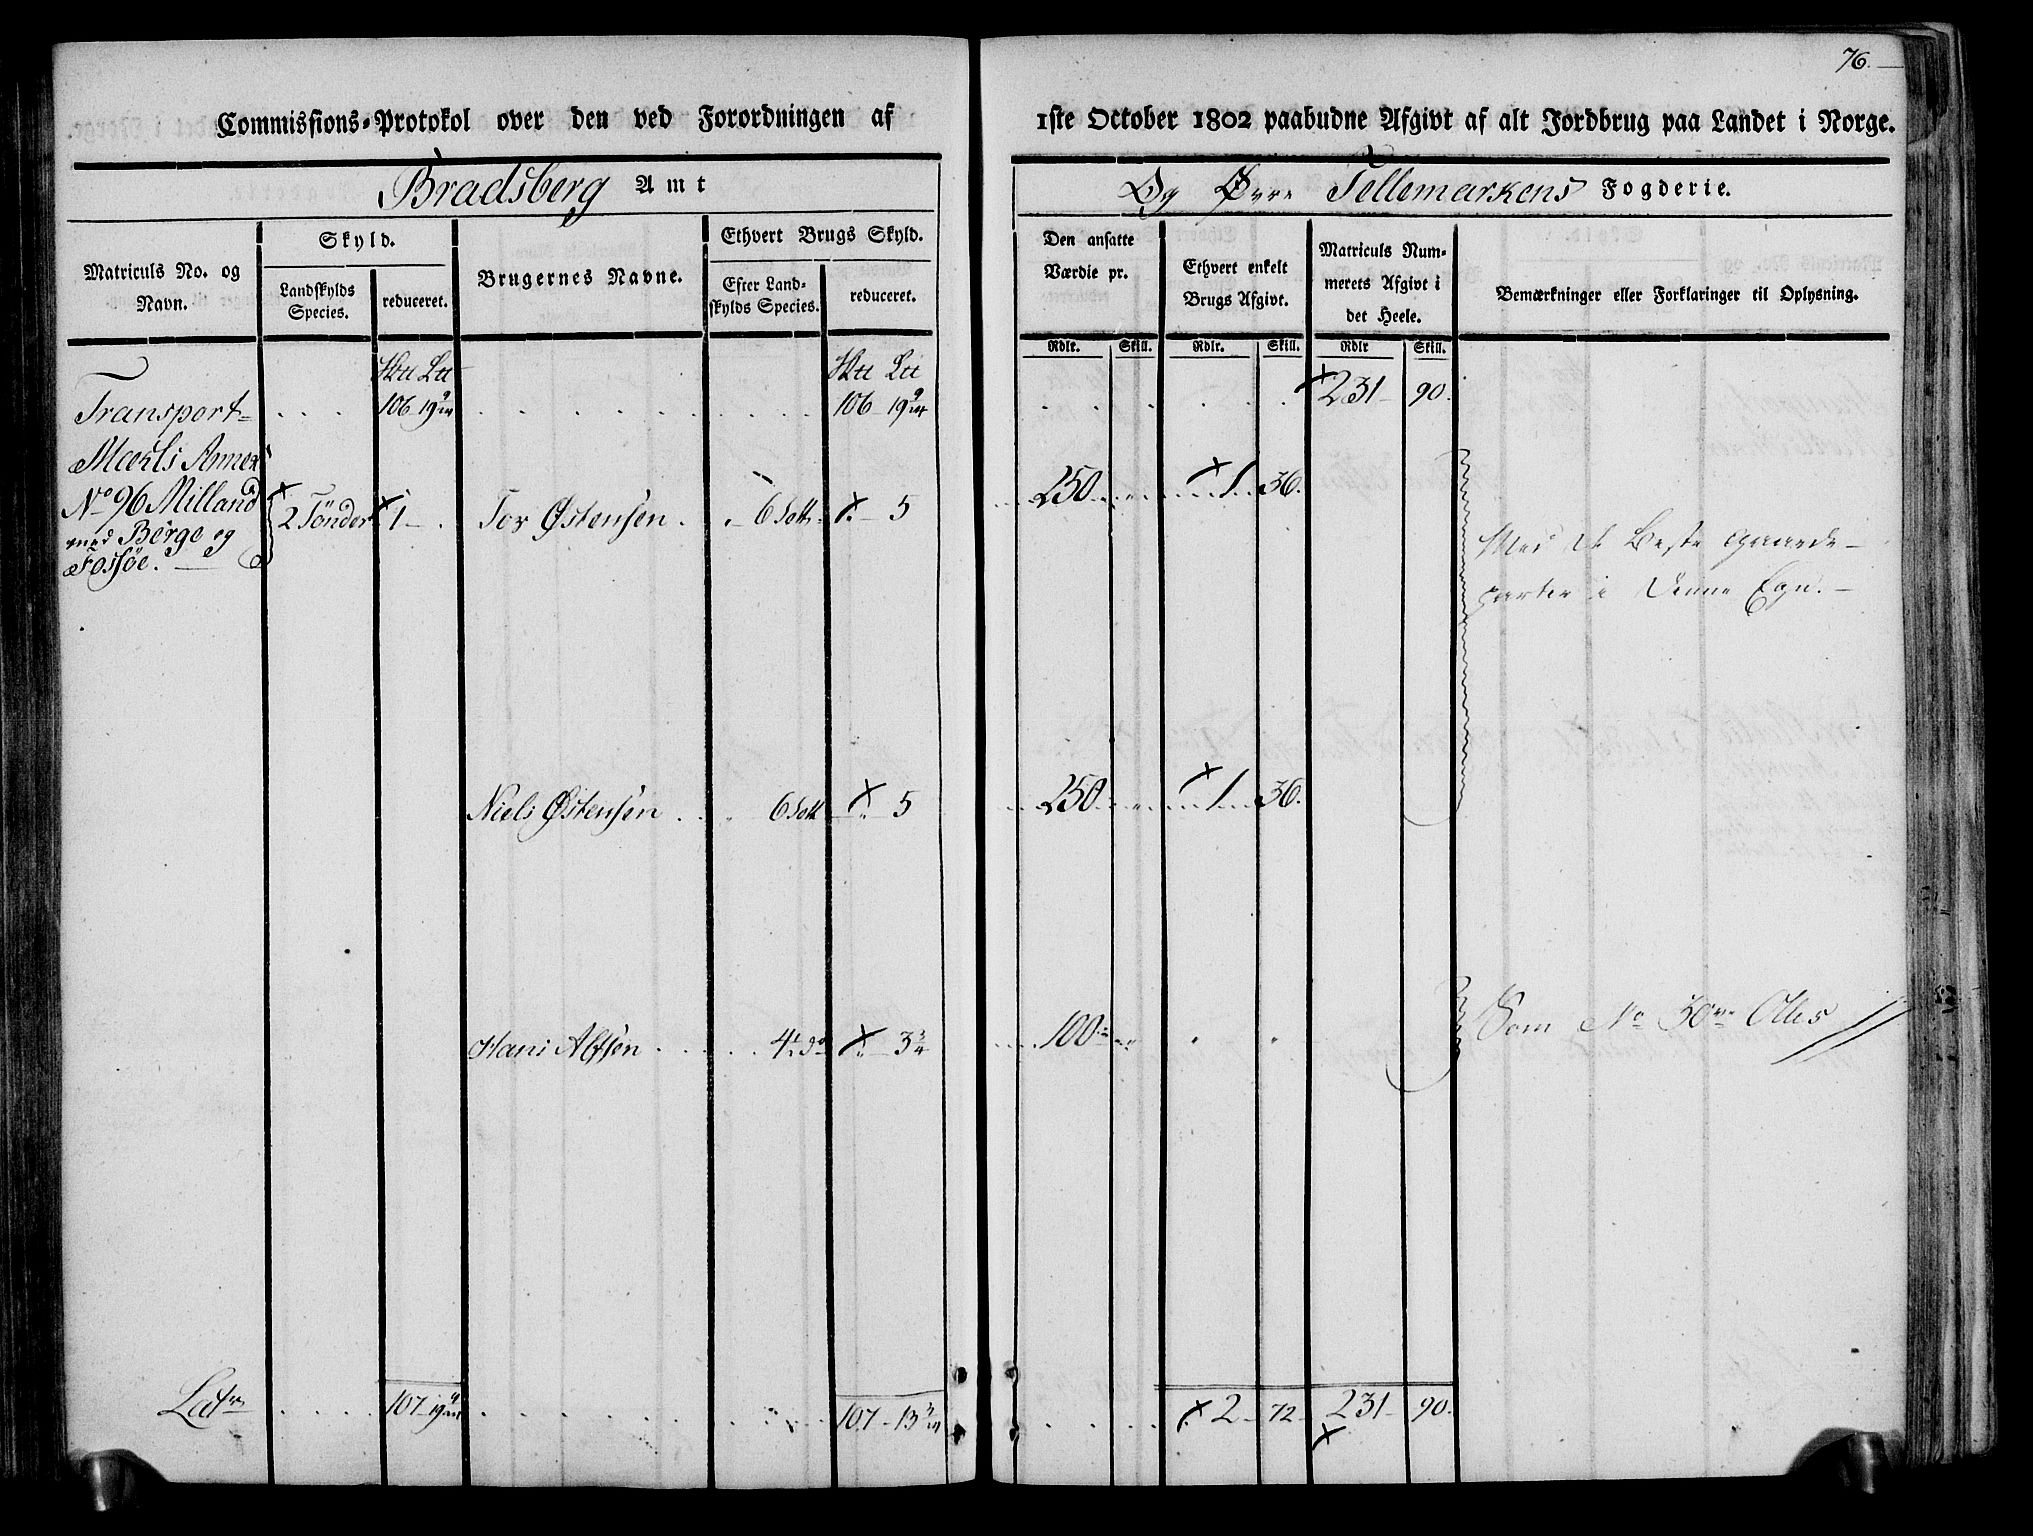 76.
Commissions-Protokol over den ved Forordningen af
1ste October 1802 paabudne Afgivt af alt Jordbrug paa Landet i Norge.
Bradsberg Amt
Og Øvre Tellemarkens Fogderie.
Matriculs No. og
Navn.
Skyld.
Landskylds
Species.
reduceret.
Brugernes Navne.
Ethvert Brugs Skyld.
Efter Land-
skylds Species.
reduceret.
Den ansatte
Værdie pr.
Ethvert enkelt
Brugs Afgivt.
Matriculs Num-
merets Afgivt i
det Heele.
Bemærkninger eller Forklaringer til Oplysning.
Rdlr. Skill. Rdlr. Skill. Rdlr Skill.
Transport 106 19 106 19 231 90.
Moels Annex
No 96 Milland
med Berge og
Fossøe.
2 Tönder 1 Tor Østensen 6 Sett. 5 250 1 36.
Med de Beste Gaarde-
parter i denne Egn.
Niels Østensen 6 Sett 5 250 1 36.
Hans Alfsen 4 do 3 3/4 100
Som No 30 Oles
Lats 107 19 107 13 2 72 231 90.